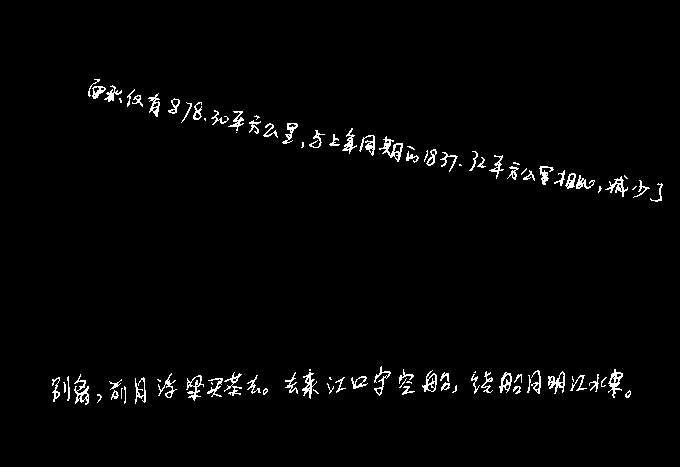 面积仅有878.30平方公里,与上年同期的1837.32平方公里相比,减少了
别离,前月浮梁买茶去。去来江口守空船,绕船月明江水寒。